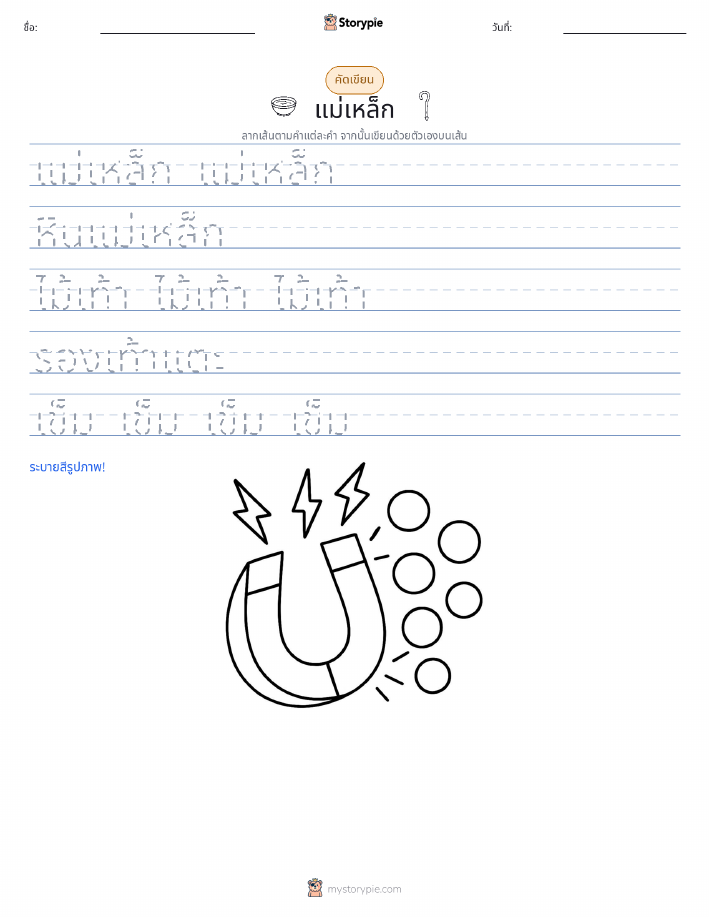 ชื่อ: Storypie วันที่:
คัดเขียน
แม่เหล็ก
ลากเส้นตามคำแต่ละคำ จากนั้นเขียนด้วยตัวเองบนเส้น
แม่เหล็ก แม่เหล็ก
หินแม่เหล็ก
ไม้เท้า ไม้เท้า ไม้เท้า
รองเท้าแตะ
เข็ม เข็ม เข็ม เข็ม
ระบายสีรูปภาพ!
mystorypie.com